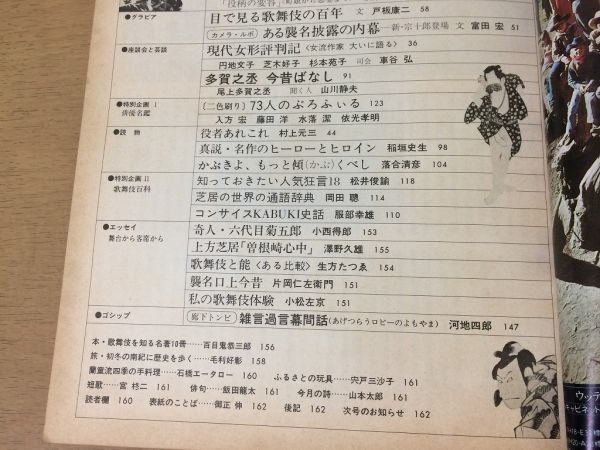 「役柄の変容」
●グラビア
目で見る歌舞伎の百年 文 戸板康二 58
カメラ・ルポ ある襲名披露の内幕 ―新・宗十郎登場 文 富田 宏 51
●座談会と芸談
現代女形評判記〈女流作家 大いに語る〉 36
円地文子 芝木好子 杉本苑子 司会 車谷 弘
多賀之丞 今昔ばなし 91
尾上多賀之丞 聞く人 山川静夫
●特別企画Ⅰ
俳優名鑑
〔二色刷り〕73人のぷろふぃる 123
入方 宏 藤田 洋 水落 潔 依光孝明
●読物
役者あれこれ 村上元三 44
真説・名作のヒーローとヒロイン 稲垣史生 98
かぶきよ、もっと傾(かぶ)くべし 落合清彦 104
●特別企画Ⅱ
歌舞伎百科
知っておきたい人気狂言18 松井俊諭 118
芝居の世界の通語辞典 岡田 聰 114
コンサイスKABUKI史話 服部幸雄 110
●エッセイ
舞台から客席から
奇人・六代目菊五郎 小西得郎 153
上方芝居「曽根崎心中」 澤野久雄 155
歌舞伎と能〈ある比較〉 生方たつゑ 154
襲名口上今昔 片岡仁左衛門 151
私の歌舞伎体験 小松左京 151
●ゴシップ
廊下トンビ 雑言過言幕間話(あげつらうロビーのよもやま) 河地四郎 147
本・歌舞伎を知る名著10冊……百目鬼恭三郎 156
旅・初冬の南紀に歴史を歩く……毛利好彰 158
蘭童流四季の手料理……石橋エータロー 160 ふるさとの玩具……宍戸三沙子 161
短歌……宮 柊二 161 俳句……飯田龍太 161 今月の詩……山本太郎 161
読者欄 160 表紙のことば……御正 伸 162 後記 162 次号のお知らせ 162